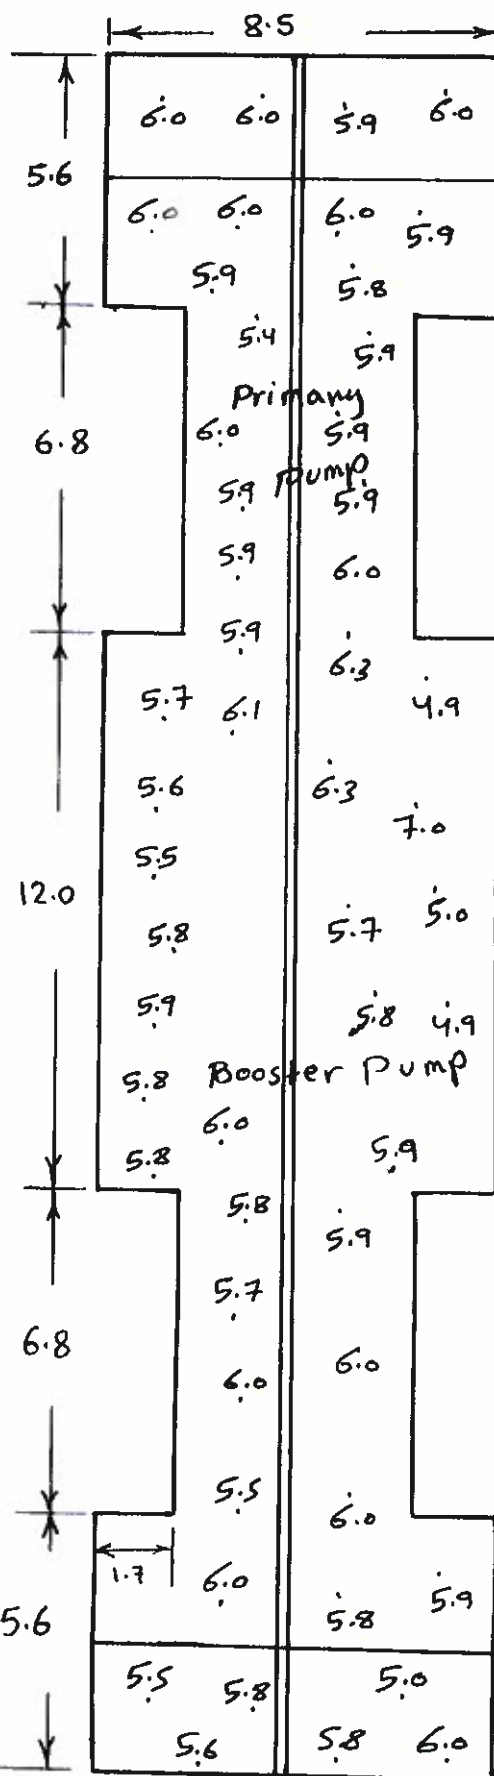 8.5
6.0 6.0 5.9 6.0
5.6
6.0 6.0 6.0 5.9
5.9 5.8
5.4 5.9
Primary
6.8 6.0 5.9
Pump
5.9 5.9
5.9 6.0
5.9 6.3
5.7 6.1 4.9
5.6 6.3
7.0
5.5
12.0 5.8 5.7 5.0
5.9 5.8 4.9
5.8 Booster Pump
6.0
5.8 5.9
5.8 5.9
5.7
6.8 6.0 6.0
5.5 6.0
1.7 6.0 5.9
5.6 5.8
5.5 5.8 5.0
5.6 5.8 6.0